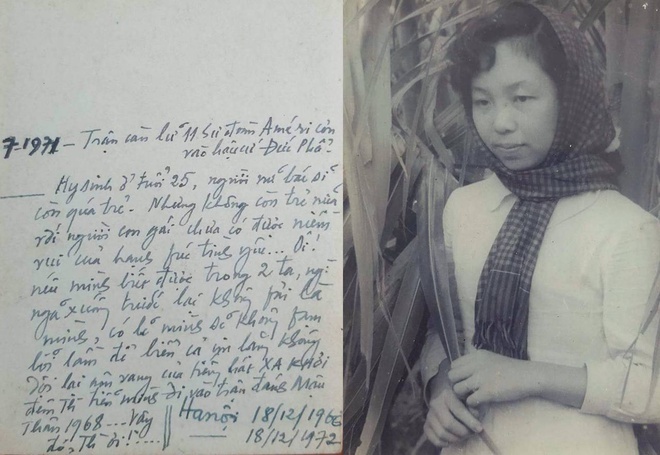 7-1971 - Trận càn lữ 11 Sư đoàn Améri còn
vào hậu cứ Đức Phổ.
Hy sinh ở tuổi 25, người nữ bác sĩ
còn quá trẻ. Nhưng không còn trẻ nữa
với người con gái chưa có được niềm
vui của hạnh fúc tình yêu... Ôi!
nếu mình biết được trong 2 ta, ng
ngã xuống trước lại không fải là
mình, có lẽ mình sẽ không fạm
lỗi lầm để biển cả im lặng không
dội lại âm vang của tiếng hát XA KHƠI
đêm Th tiễn mình đi vào trận đánh Mậu
Thân 1968... Vậy
đó, Th ơi!....
Hanội 18/12/1966
18/12/1972